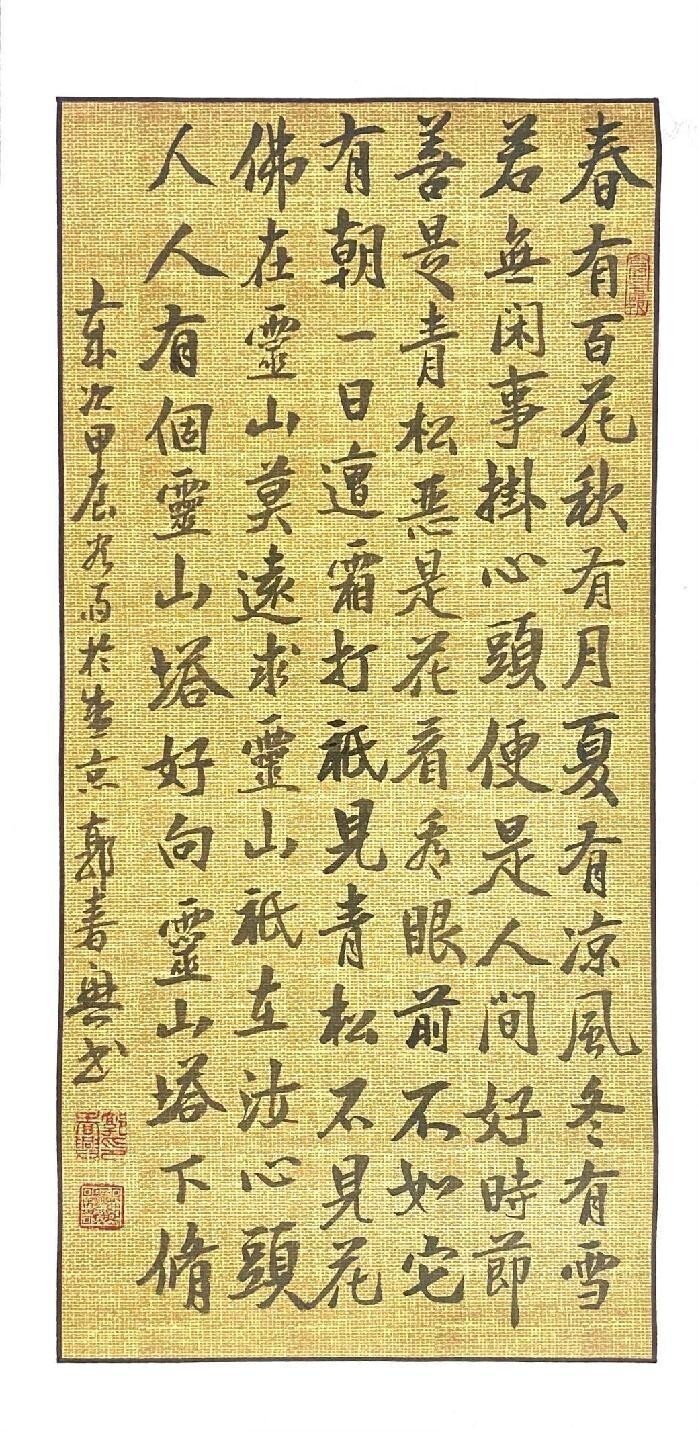 春有百花秋有月夏有凉風冬有雪
若無闲事掛心頭便是人间好時節
善是青松恶是花看看眼前不如它
有朝一日遭霜打祇見青松不見花
佛在靈山莫遠求靈山祇在汝心頭
人人有個靈山塔好向靈山塔下脩
歲次甲辰於京郭春興书